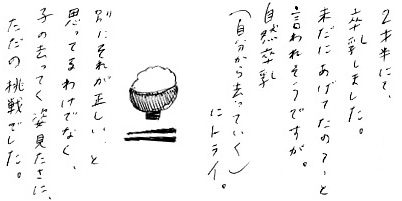 2才半にて、
卒乳しました。
未だにあげてたの？と
言われそうですが。
自然卒乳
（自分から去っていく）
にトライ。
別にそれが正しい、と
思ってるわけでなく、
子の去ってく姿見たさに、
ただの挑戦でした。